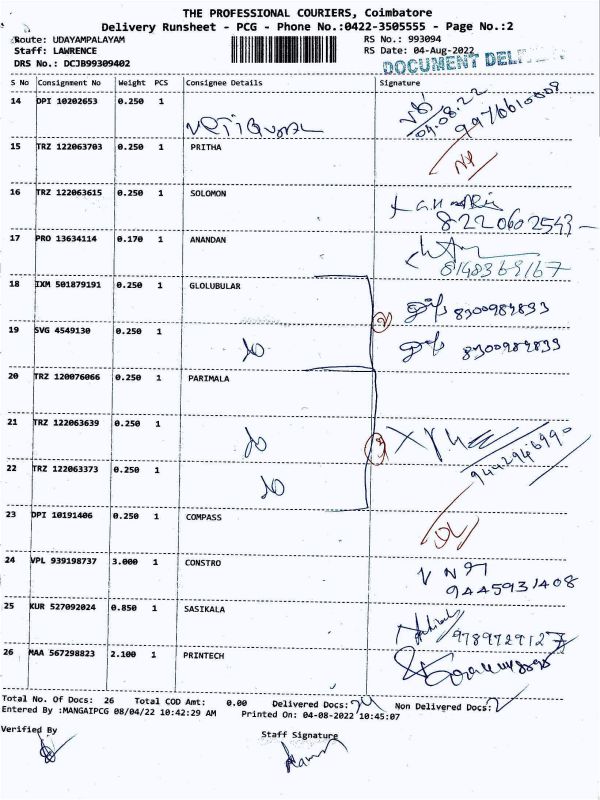 THE PROFESSIONAL COURIERS, Coimbatore
Delivery Runsheet - PCG - Phone No.:0422-3505555 - Page No.:2
Route: UDAYAMPALAYAM RS No.: 993094
Staff: LAWRENCE RS Date: 04-Aug-2022
DRS No.: DCJB99309402 DOCUMENT DELI
S No Consignment No Weight PCS Consignee Details Signature
14 DPI 10202653 0.250 1
04.08.22 9976610009
15 TRZ 122063703 0.250 1 PRITHA
16 TRZ 122063615 0.250 1 SOLOMON
8220602543
17 PRO 13634114 0.170 1 ANANDAN
8148369167
18 IXM 501879191 0.250 1 GLOLUBULAR
2 8300984833
19 SVG 4549130 0.250 1
8300984833
20 TRZ 120076066 0.250 1 PARIMALA
21 TRZ 122063639 0.250 1
3 9442946990
22 TRZ 122063373 0.250 1
23 DPI 10191406 0.250 1 COMPASS
DL
24 VPL 939198737 3.000 1 CONSTRO
9445931408
25 KUR 527092024 0.850 1 SASIKALA
9789729127
26 MAA 567298823 2.100 1 PRINTECH
Total No. Of Docs: 26 Total COD Amt: 0.00 Delivered Docs: 24 Non Delivered Docs: 2
Entered By :MANGAIPCG 08/04/22 10:42:29 AM Printed On: 04-08-2022 10:45:07
Verified By Staff Signature